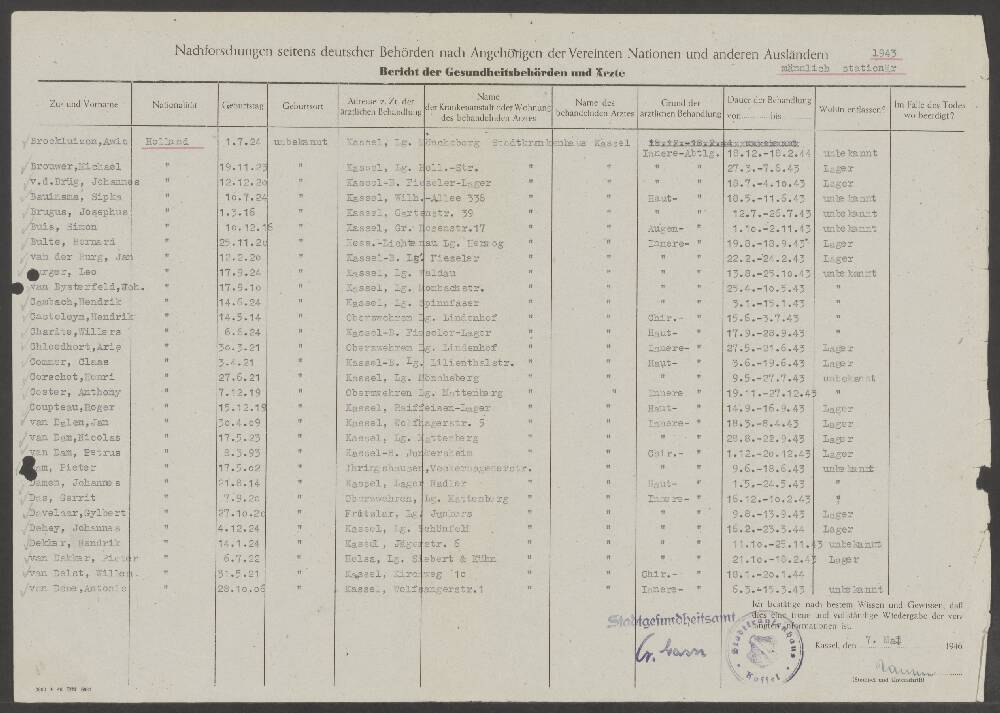 Nachforschungen seitens deutscher Behörden nach Angehörigen der Vereinten Nationen und anderen Ausländern 1943
Bericht der Gesundheitsbehörden und Ärzte männlich stationär
Zu- und Vorname Nationalität Geburtstag Geburtsort Adresse z. Zt. der ärztlichen Behandlung Name der Krankenanstalt oder Wohnung des behandelnden Arztes Name des behandelnden Arztes Grund der ärztlichen Behandlung Dauer der Behandlung von bis Wohin entlassen? Im Falle des Todes wo beerdigt?
Holland 1.7.24 unbekannt Kassel, Lg. Mönchsberg Stadtkrankenhaus Kassel
Innere-Abtlg. 18.12.-18.2.44 unbekannt
Brouwer, Michael " 19.11.23 " Kassel, Lg. Holl.-Str. " " " " 27.3.-7.6.43 Lager
v.d.Brüg, Johannes " 12.12.20 " Kassel-B. Fieseler-Lager " " " " 18.7.-4.10.43 Lager
" 10.7.24 " Kassel, Wilh.-Allee 336 " " Haut- " 18.5.-11.6.43 unbekannt
Brugus, Josephus " 1.3.16 " Kassel, Gartenstr. 39 " " " " 12.7.-26.7.43 unbekannt
Buis, Simon " 10.12.16 " Kassel, Gr. Rosenstr.17 " " Augen- " 1.10.-2.11.43 unbekannt
Bulte, Bernard " 25.11.20 " Hess.-Lichtenau Lg. Herzog " " Innere- " 19.8.-18.9.43 Lager
van der Burg, Jan " 12.2.20 " Kassel-B. Lg. Fieseler " " " " 22.2.-24.2.43 Lager
Leo " 17.9.24 " Kassel, Lg. Waldau " " " " 13.8.-25.10.43 unbekannt
van Bysterfeld, Joh. " 17.9.10 " Kassel, Lg. Rombachstr. " " " " 25.4.-10.5.43 "
Cambach, Hendrik " 14.6.24 " Kassel, Lg. Spinnfaser " " " " 3.1.-15.1.43 "
Casteleyn, Hendrik " 14.5.14 " Oberzwehren Lg. Lindenhof " " Chir.- " 15.6.-3.7.43 "
Charite, Willers " 6.6.24 " Kassel-B. Fieseler-Lager " " Haut- " 17.9.-28.9.43 "
Chloedhort, Arie " 30.3.21 " Oberzwehren Lg. Lindenhof " " Innere- " 27.5.-21.6.43 Lager
Commer, Claas " 3.4.21 " Kassel-B. Lg. Lilienthalstr. " " Haut- " 3.6.-19.6.43 Lager
Corschot, Henri " 27.6.21 " Kassel, Lg. Mönchsberg " " " " 9.5.-27.7.43 unbekannt
Coster, Anthony " 7.12.19 " Oberzwehren Lg. Mattenberg " " Innere " 19.11.-27.12.43 "
Coupteau, Roger " 15.12.19 " Kassel, Raiffeisen-Lager " " Haut- " 14.9.-16.9.43 Lager
van Dalen, Jan " 30.4.09 " Kassel, Wolfhagerstr. 5 " " Innere- " 18.3.-8.4.43 Lager
van Dam, Nicolas " 17.5.23 " Kassel, Lg. Mattenberg " " " " 28.8.-22.9.43 Lager
van Dam, Petrus " 2.3.93 " Kassel-H. Junkersheim " " Chir.- " 1.12.-20.12.43 Lager
Dam, Pieter " 17.5.02 " Ihringshausen, Veckerhagenerstr. " " " 9.6.-18.6.43 unbekannt
Damen, Johannes " 21.8.14 " Kassel, Lager Radler " " Haut- " 1.5.-24.5.43 "
Das, Gerrit " 7.9.20 " Oberzwehren, Lg. Mattenberg " " Innere- " 16.12.-10.2.43 "
Davelaar, Gylbert " 27.10.20 " Fritzlar, Lg. Junkers " " " " 9.8.-13.9.43 Lager
Dehey, Johannes " 4.12.24 " Kassel, Lg. Schönfeld " " " " 16.2.-23.3.44 Lager
Dekker, Hendrik " 14.1.24 " Kassel, Jägerstr. 6 " " " " 11.10.-25.11.43 unbekannt
van Dekker, Pieter " 6.7.22 " Helsa, Lg. Siebert & Kühn " " " " 21.10.-10.2.43 Lager
van Delst, Willem " 31.5.21 " Kassel, Kirchweg 10 " " Chir.- " 18.1.-20.1.44
van Dame, Antonie " 28.10.06 " Kassel, Wolfsangerstr.1 " " Innere- " 6.3.-15.3.43 unbekannt
Ich bestätige nach bestem Wissen und Gewissen, daß
dies eine treue und vollständige Wiedergabe der verlangten Informationen ist.
Stadtgesundheitsamt
Stadtkrankenhaus Kassel
Kassel, den 7. Mai 1946
(Stempel und Unterschrift)